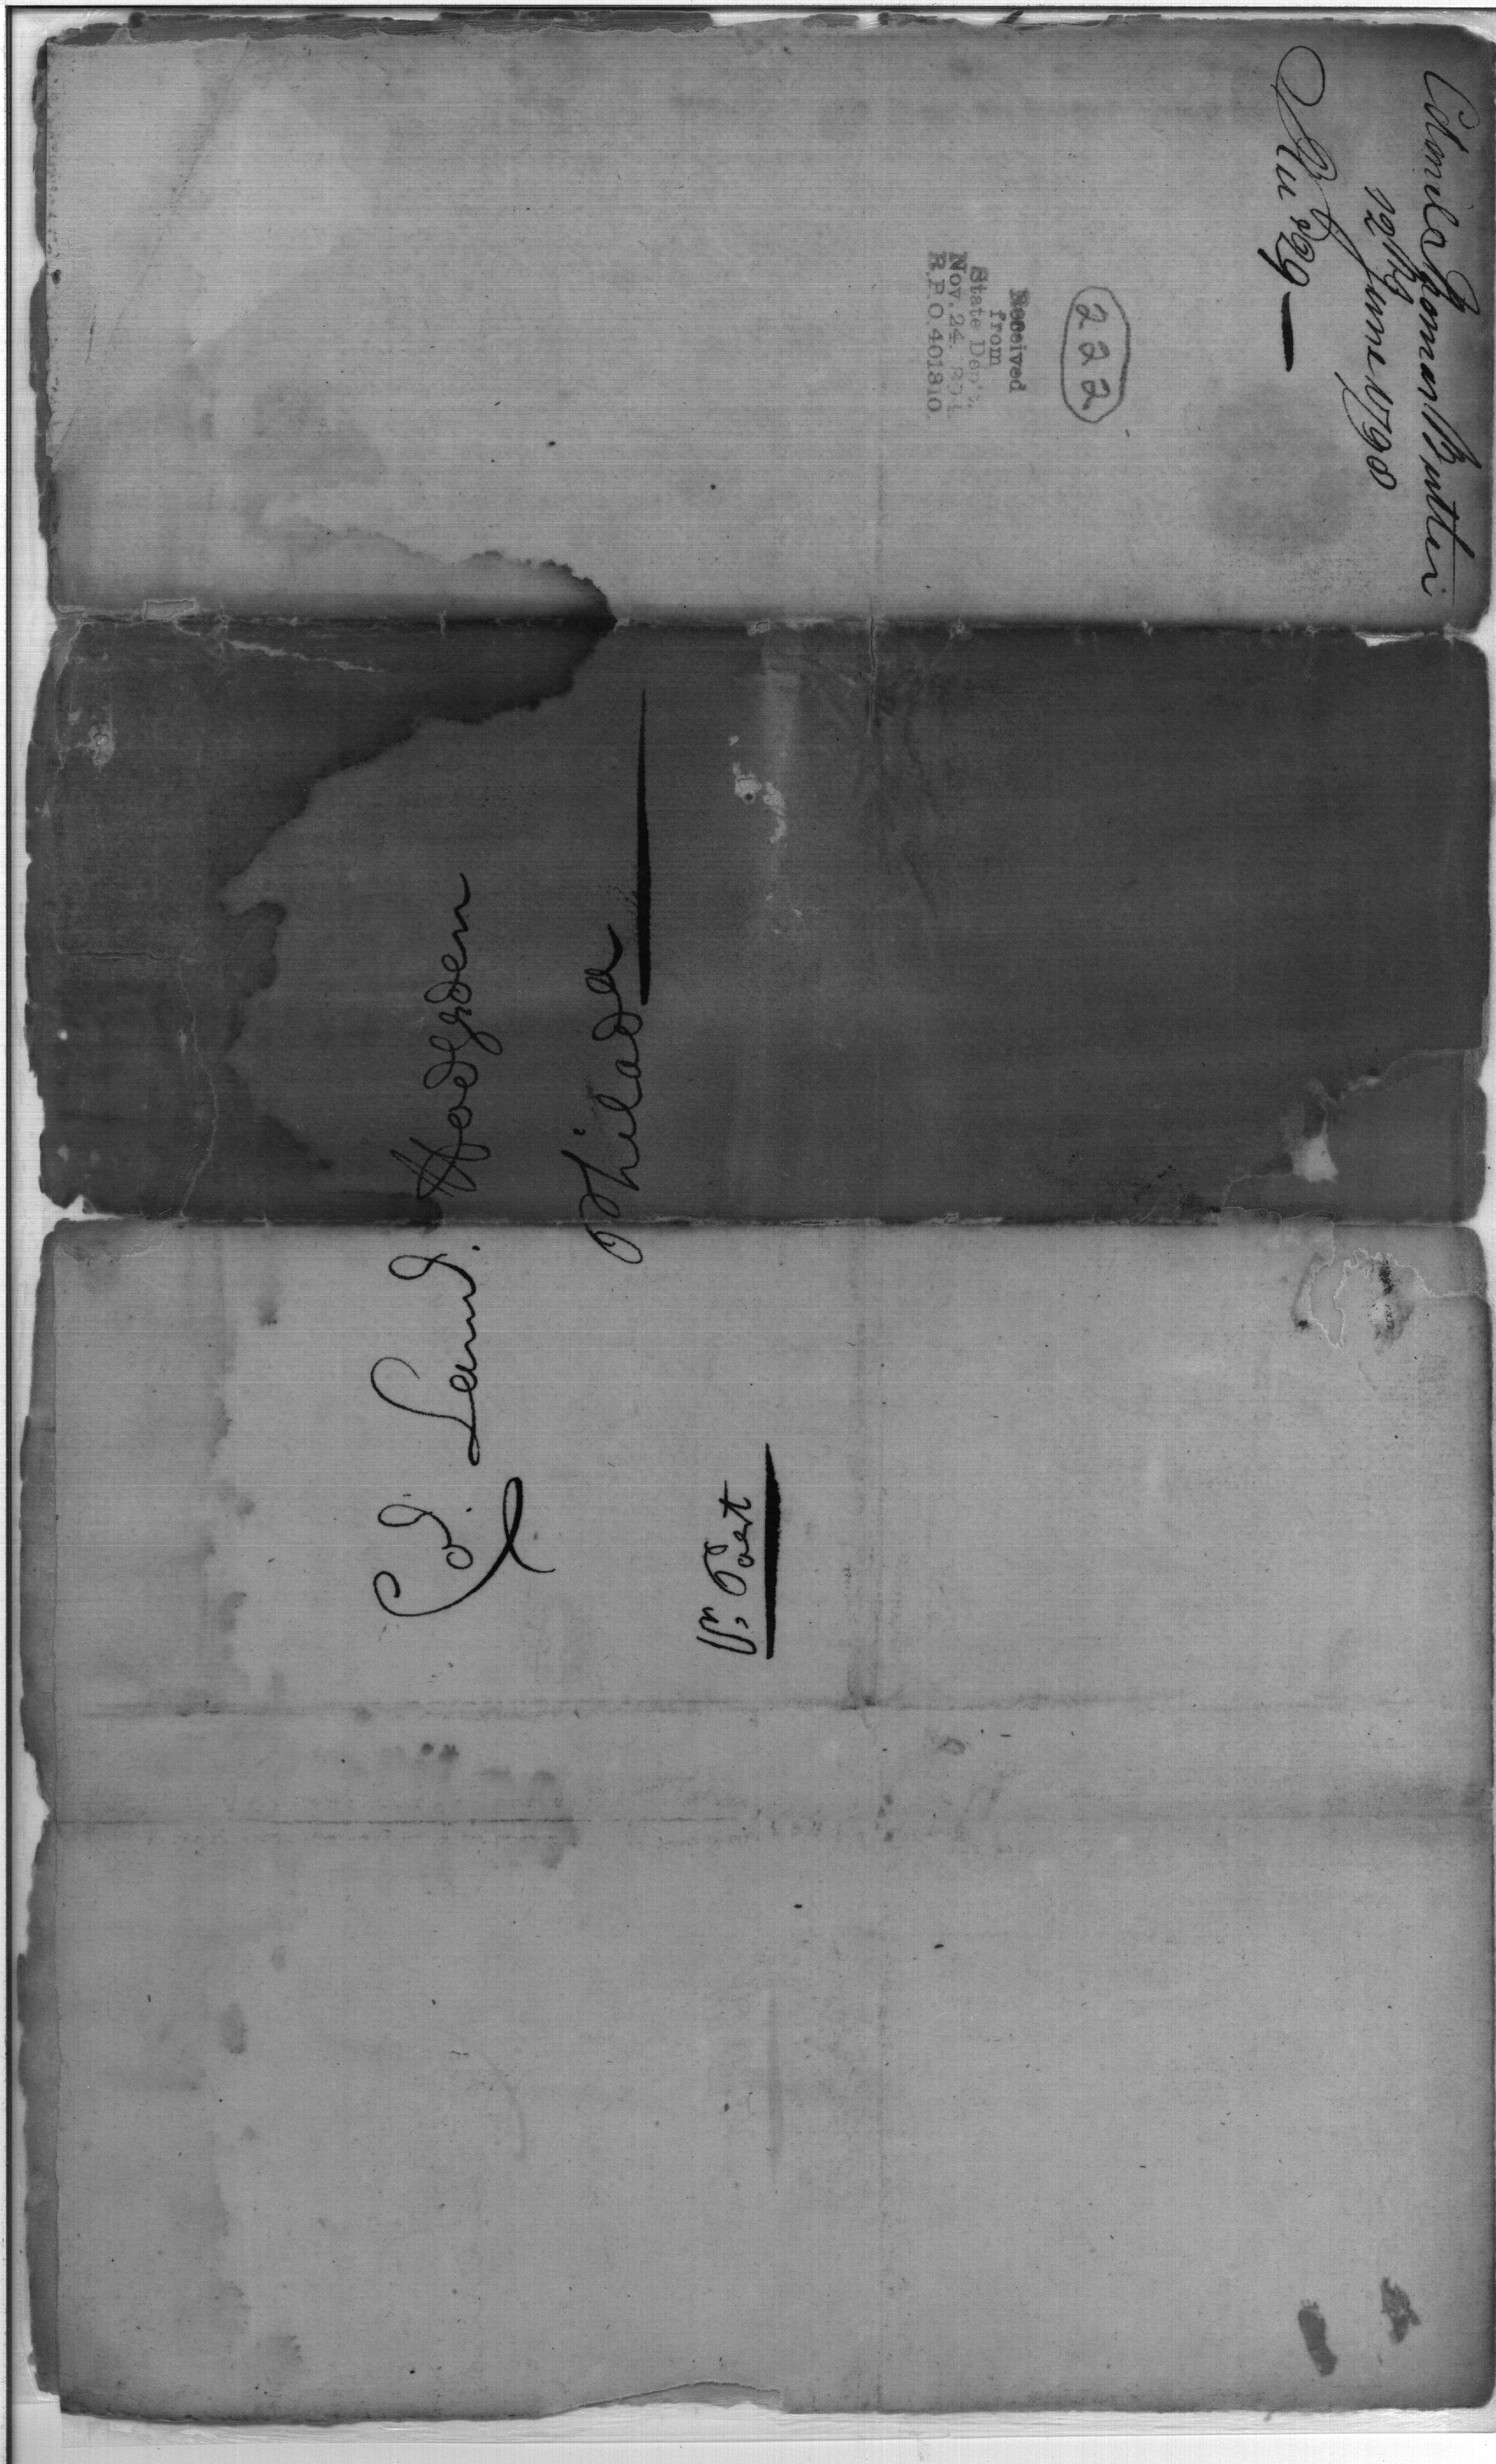 Colonel Thomas Butler
12th June 1798
222
Received
from
State Dep't.
Nov. 24,
R.P.O. 401810.
Col. Saml. Hodgden
Philada
Pr. Post